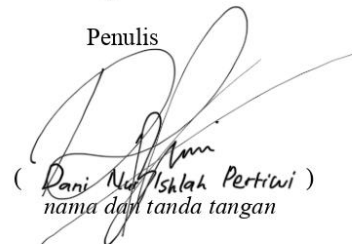 Penulis
( Dani Nur Ishlah Pertiwi )
nama dan tanda tangan